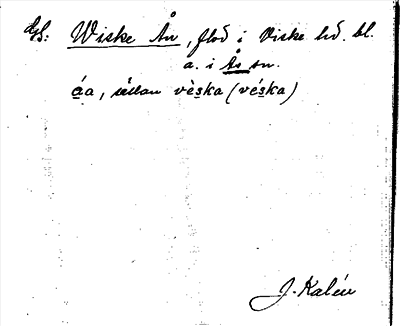 GS: Wiske Ån, flod i Viske hd. bl.
a. i Ås sn.
áa, utan vèska (véska)
J. Kalén